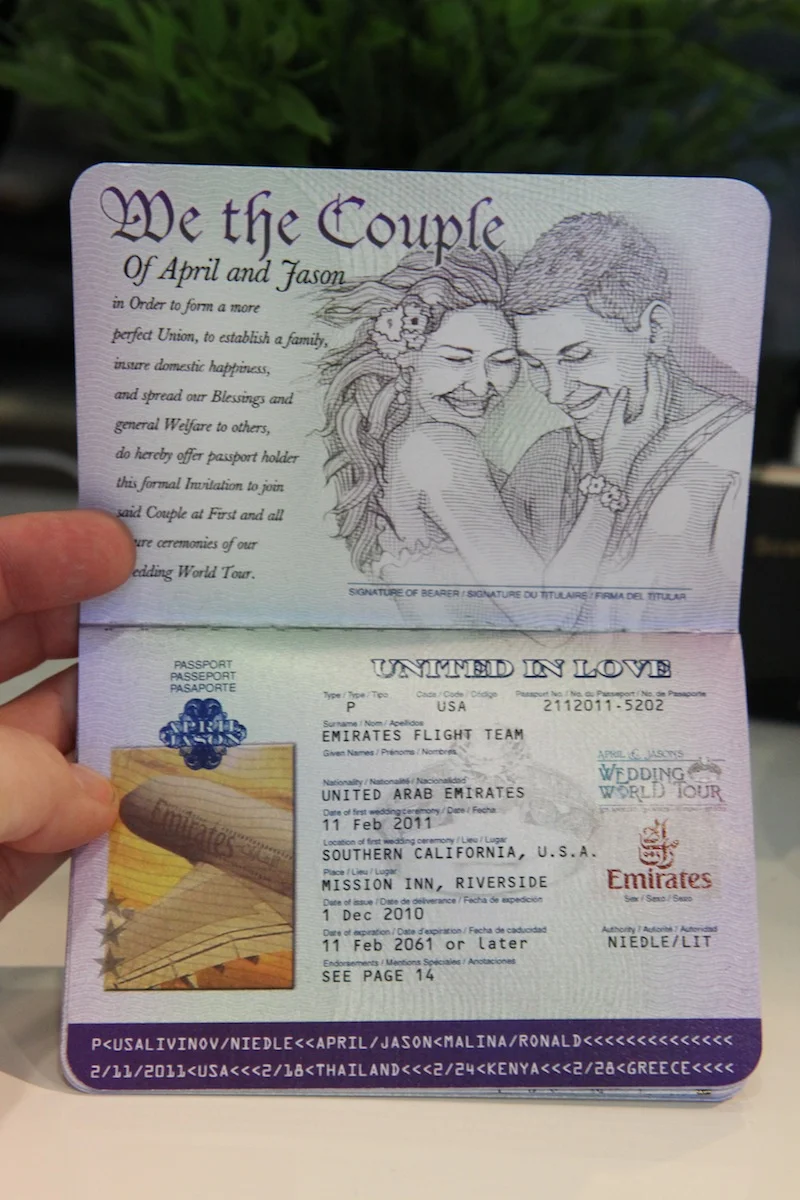 We the Couple
Of April and Jason
in Order to form a more
perfect Union, to establish a family,
insure domestic happiness,
and spread our Blessings and
general Welfare to others,
do hereby offer passport holder
this formal Invitation to join
said Couple at First and all
ure ceremonies of our
edding World Tour.
SIGNATURE OF BEARER / SIGNATURE DU TITULAIRE / FIRMA DEL TITULAR
PASSPORT
PASSEPORT
PASAPORTE
APRIL
JASON
Emirates
UNITED IN LOVE
Type / Type / Tipo Code / Code / Código Passport No. / No. du Passeport / No. de Pasaporte
P USA 2112011-5202
Surname / Nom / Apellidos
EMIRATES FLIGHT TEAM
Given Names / Prénoms / Nombres
Nationality / Nationalité / Nacionalidad
UNITED ARAB EMIRATES
Date of first wedding ceremony / Date / Fecha
11 Feb 2011
Location of first wedding ceremony / Lieu / Lugar
SOUTHERN CALIFORNIA, U.S.A.
Place / Lieu / Lugar
MISSION INN, RIVERSIDE
Date of issue / Date de déliverance / Fecha de expedición
1 Dec 2010
Date of expiration / Date d'expiration / Fecha de caducidad
11 Feb 2061 or later
Endorsements / Mentions Spéciales / Anotaciones
SEE PAGE 14
APRIL & JASON'S
WEDDING
WORLD TOUR
Emirates
Sex / Sexo / Sexo
Authority / Autorité / Autoridad
NIEDLE/LIT
P<USALIVINOV/NIEDLE<<APRIL/JASON<MALINA/RONALD<<<<<<<<<<<<<<<
2/11/2011<USA<<<2/18<THAILAND<<<2/24<KENYA<<<2/28<GREECE<<<<